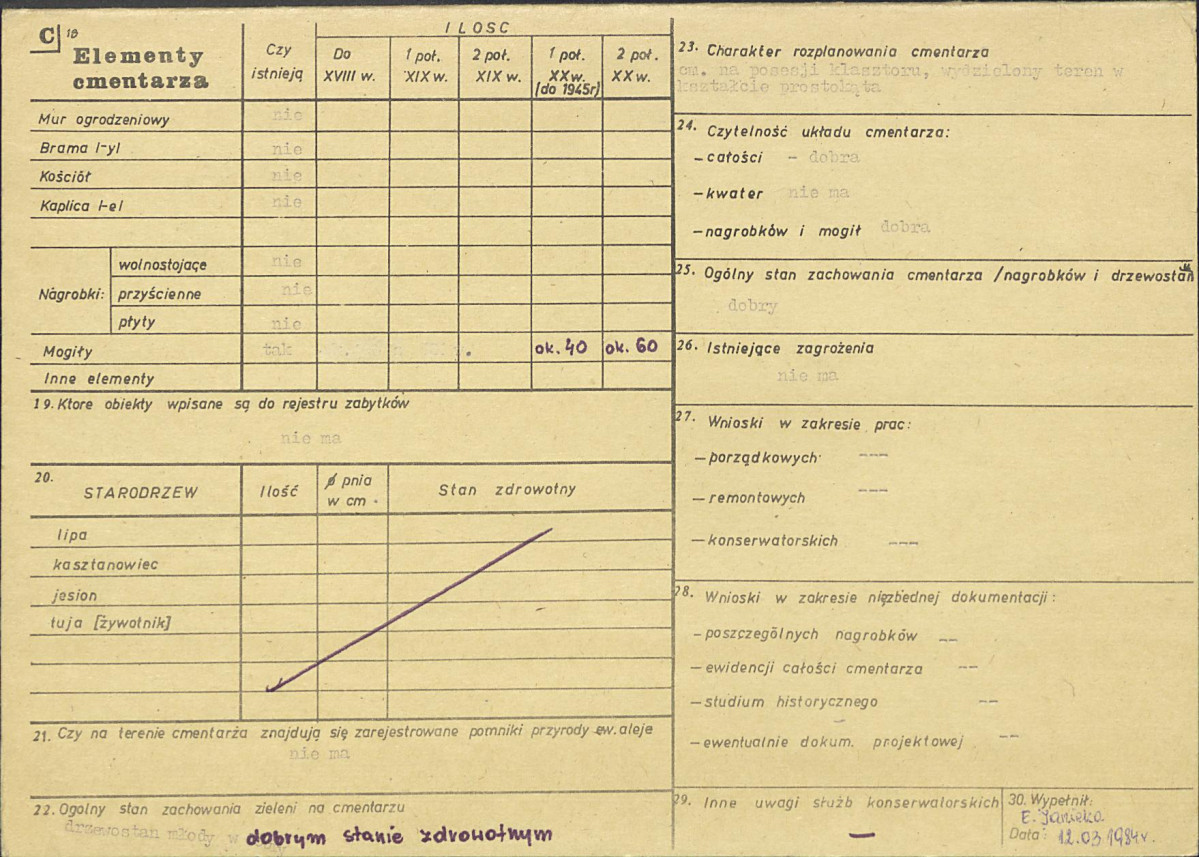 C 18
Elementy
cmentarza
Czy
istnieją
ILOSC
Do
XVIII w.
1 poł.
XIX w.
2 poł.
XIX w.
1 poł.
XX w.
(do 1945r)
2 poł.
XX w.
Mur ogrodzeniowy nie
Brama /-y/ nie
Kościół nie
Kaplica /-e/ nie
Nagrobki: wolnostojące nie
przyścienne nie
płyty nie
Mogiły tak ok. 40 ok. 60
Inne elementy
19. Ktore obiekty wpisane są do rejestru zabytków
nie ma
20.
STARODRZEW Ilość ø pnia
w cm Stan zdrowotny
lipa
kasztanowiec
jesion
tuja [żywotnik]
21. Czy na terenie cmentarza znajdują się zarejestrowane pomniki przyrody ew. aleje
nie ma
22. Ogolny stan zachowania zieleni na cmentarzu
drzewostan młody w dobrym stanie zdrowotnym
23. Charakter rozplanowania cmentarza
cm. na posesji klasztoru, wydzielony teren w
kształcie prostokąta
24. Czytelność układu cmentarza:
- całości - dobra
- kwater nie ma
- nagrobków i mogił dobra
25. Ogólny stan zachowania cmentarza /nagrobków i drzewostan
dobry
26. Istniejące zagrożenia
nie ma
27. Wnioski w zakresie prac:
- porządkowych ---
- remontowych ---
- konserwatorskich ---
28. Wnioski w zakresie nięzbednej dokumentacji:
- poszczególnych nagrobków --
- ewidencji całości cmentarza --
- studium historycznego --
- ewentualnie dokum. projektowej --
29. Inne uwagi służb konserwatorskich
—
30. Wypełnił:
E. Janicka
Data: 12.03.1984r.